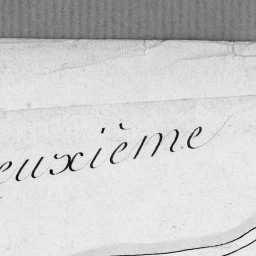 euxième